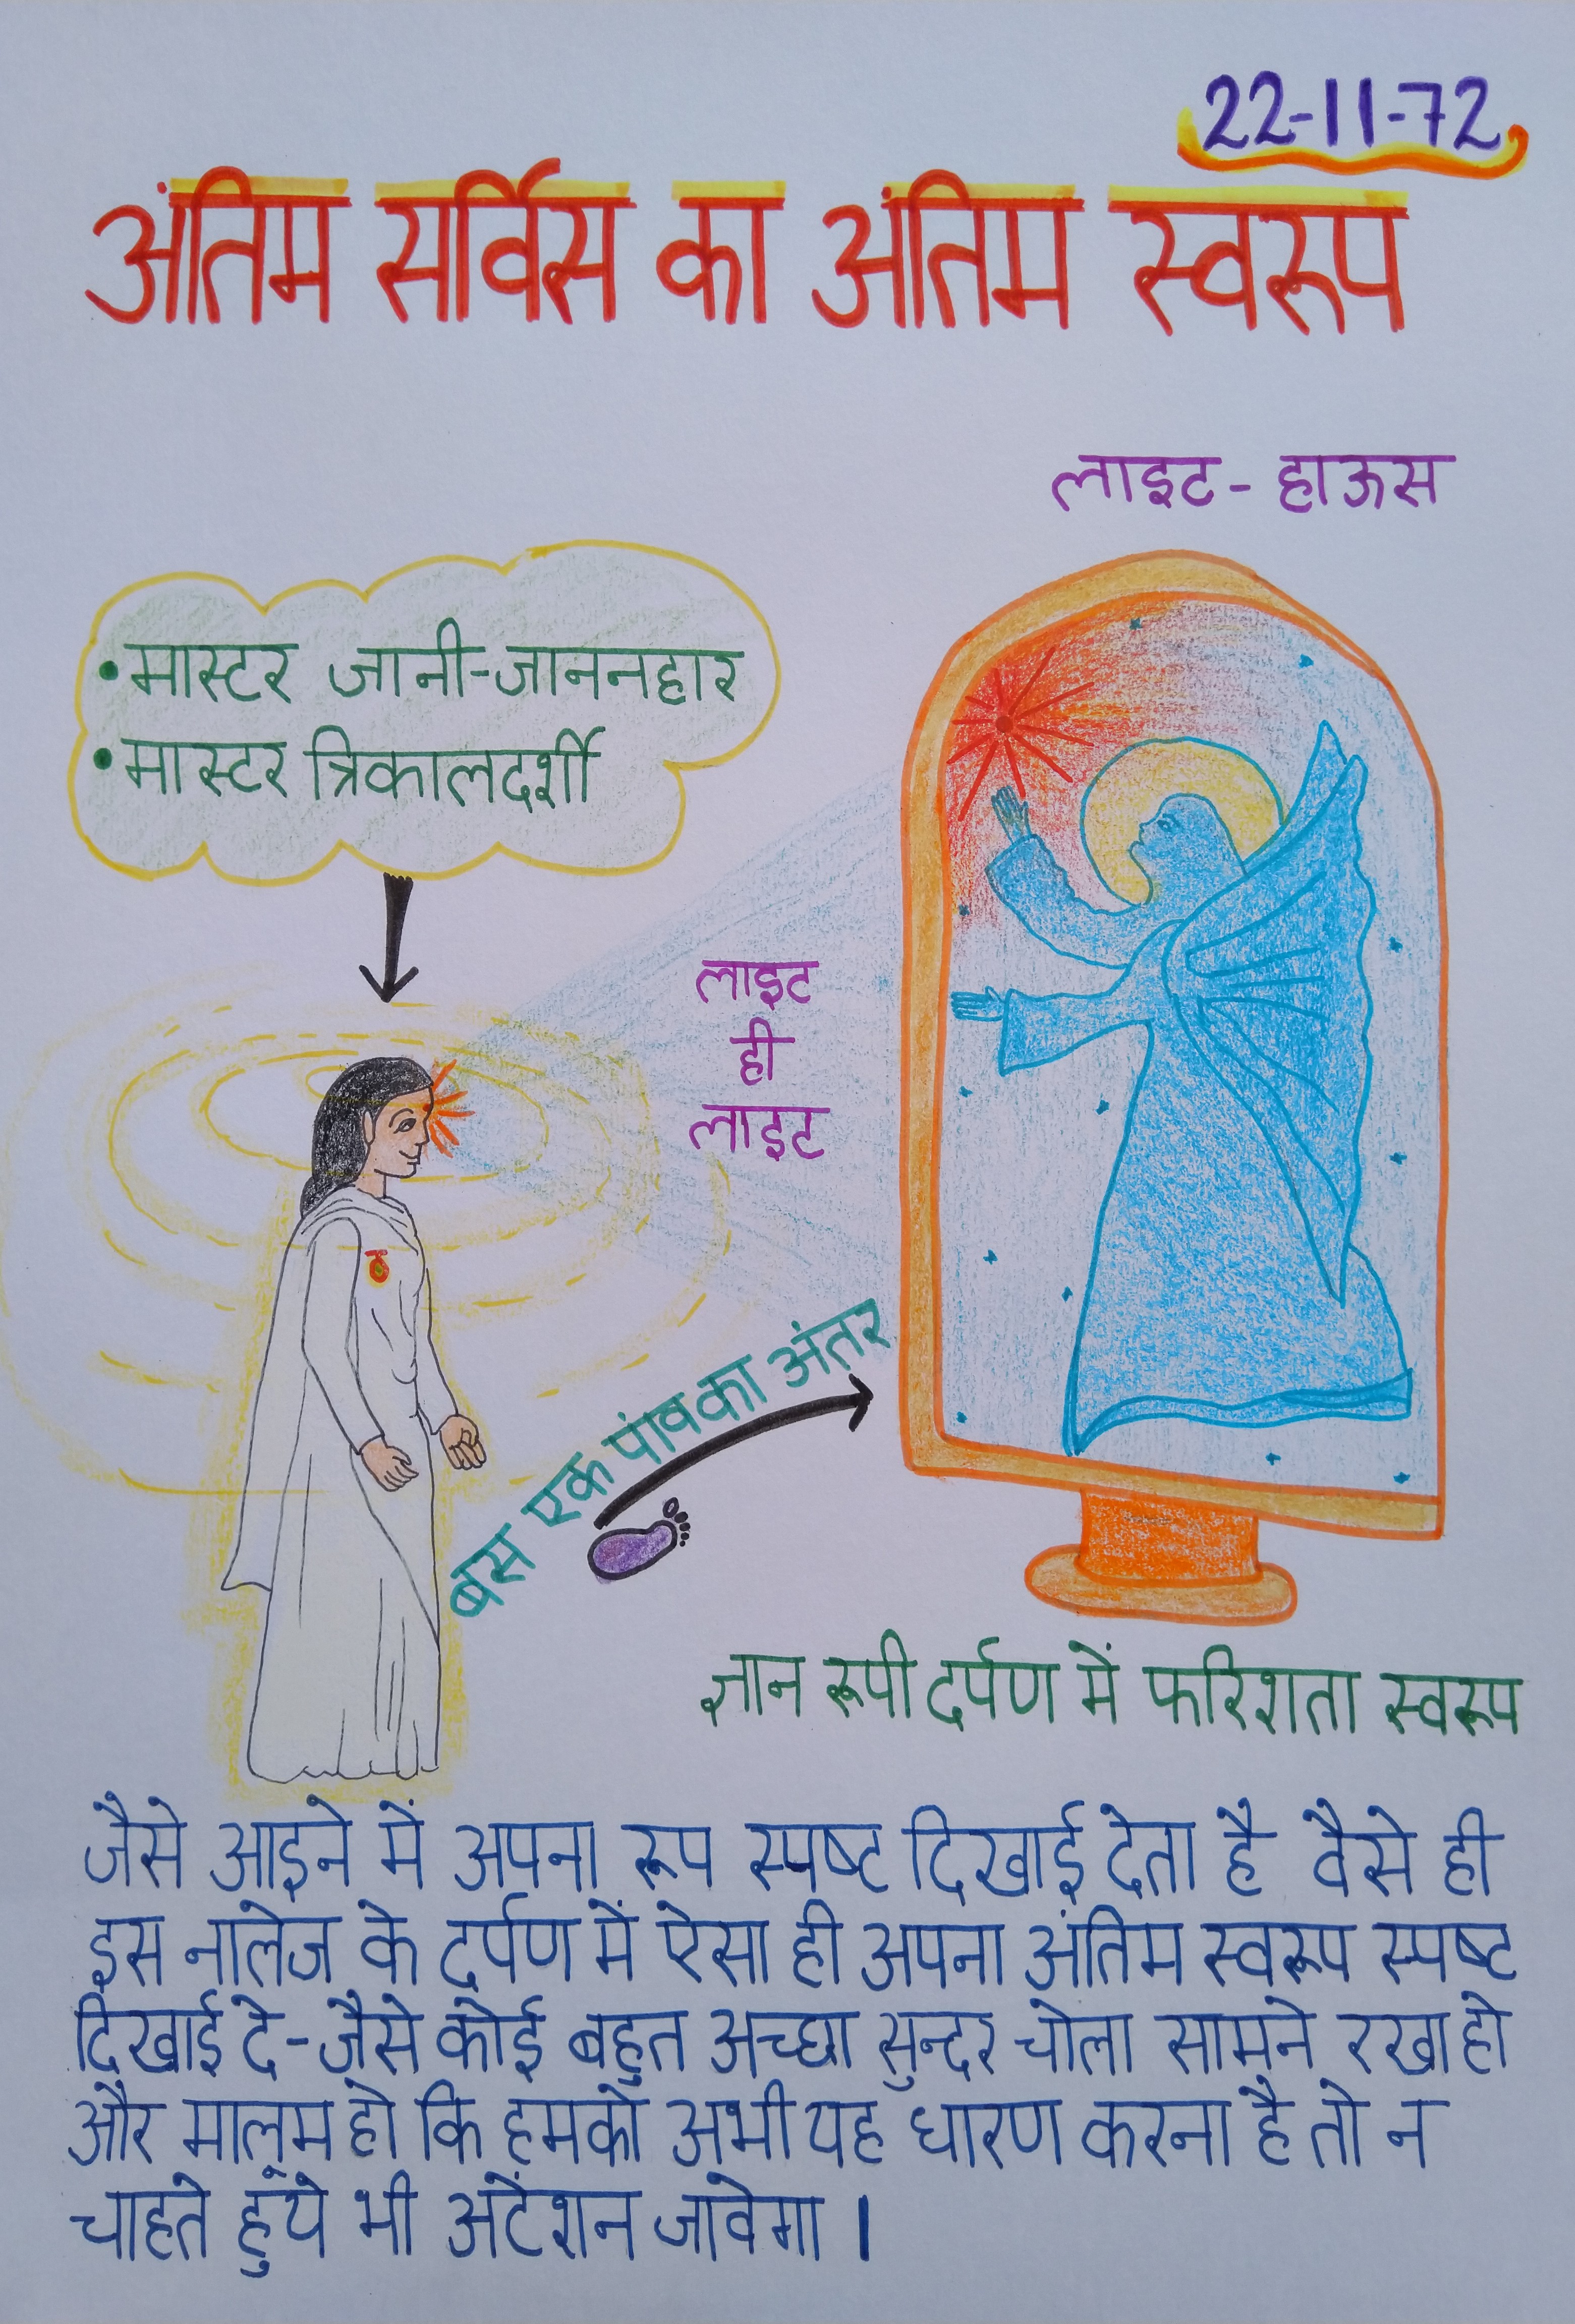 22-11-72
अंतिम सर्विस का अंतिम स्वरूप
लाइट-हाऊस
• मास्टर जानी-जाननहार
• मास्टर त्रिकालदर्शी
लाइट
ही
लाइट
बस एक पांव का अंतर
ज्ञान रूपी दर्पण में फरिशता स्वरूप
जैसे आइने में अपना रूप स्पष्ट दिखाई देता है वैसे ही
इस नालेज के दर्पण में ऐसा ही अपना अंतिम स्वरूप स्पष्ट
दिखाई दे-जैसे कोई बहुत अच्छा सुन्दर चोला सामने रखा हो
और मालूम हो कि हमको अभी यह धारण करना है तो न
चाहते हुये भी अटेंशन जावेगा।